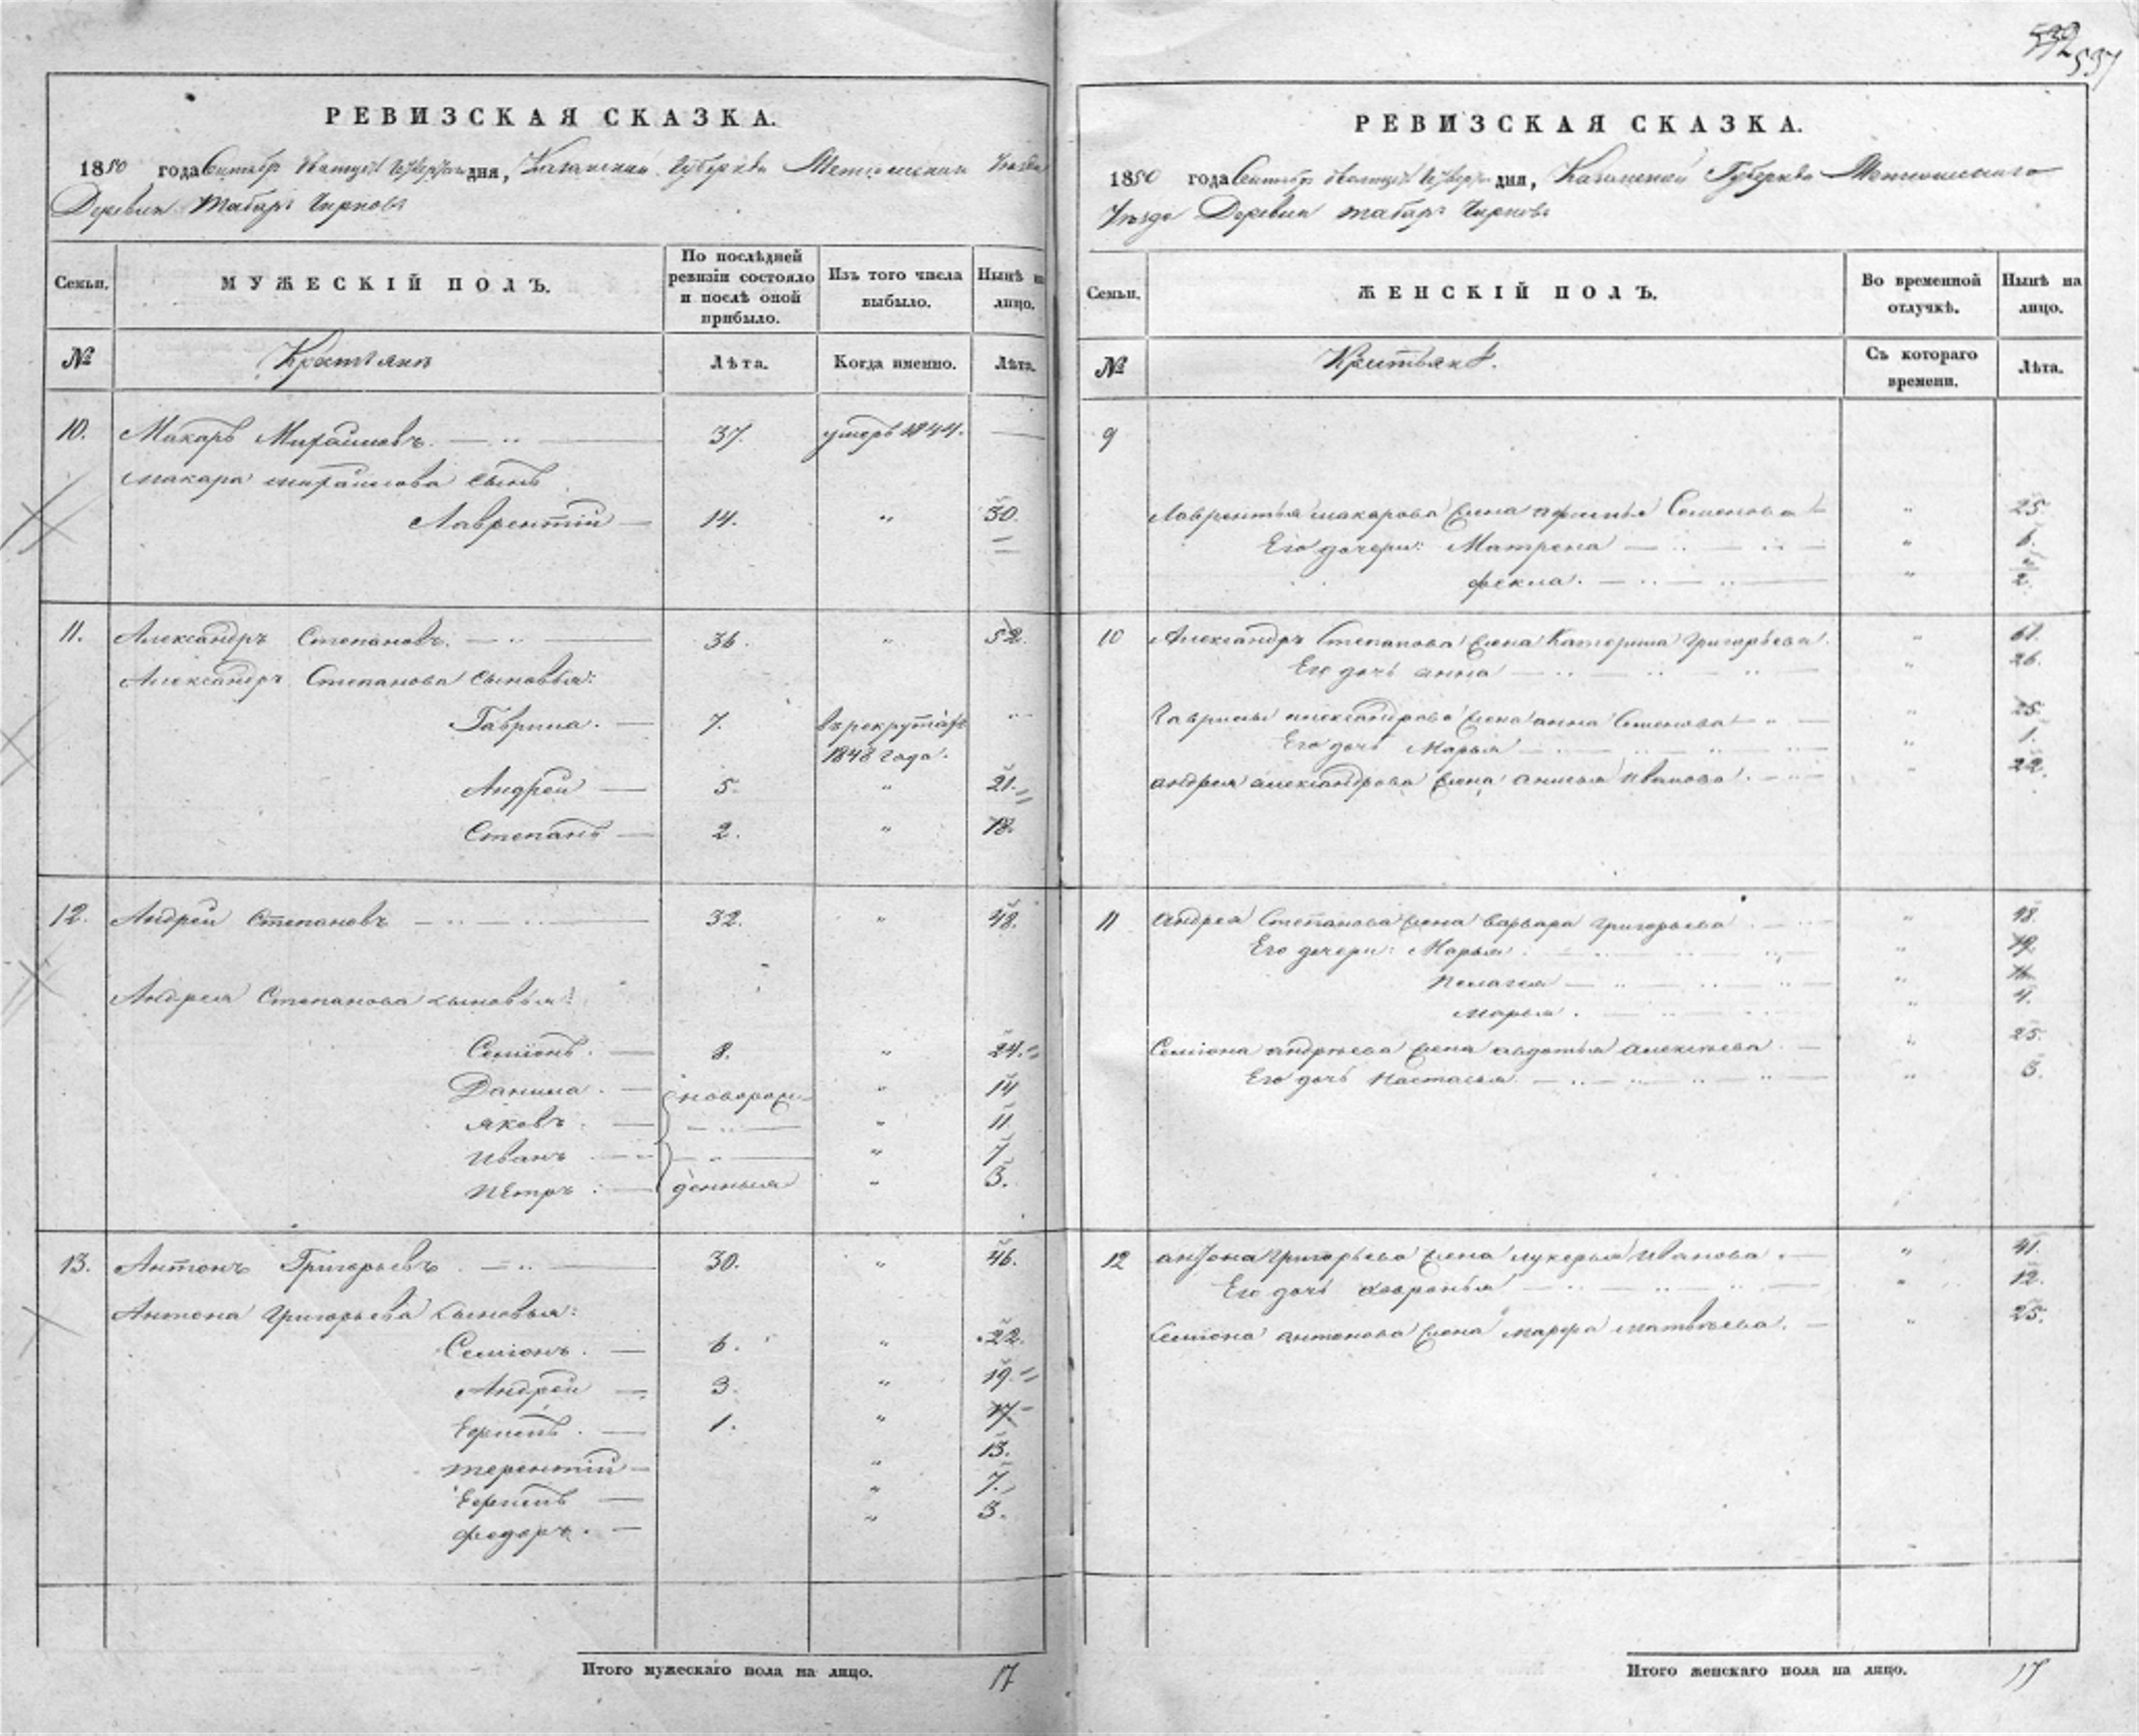 537
РЕВИЗСКАЯ СКАЗКА.
1850 года Сентября дня, Казанской Губернии Уезда
Деревни Табаръ Чирковъ
Семьи.
МУЖЕСКІЙ ПОЛЪ.
По послѣдней ревизіи состояло и послѣ оной прибыло.
Изъ того числа выбыло.
Нынѣ на лицо.
№
Лѣта.
Когда именно.
Лѣта.
10. Макаръ 37. умеръ 1844. —
Макара сынъ
Лаврентій — 14. „ 30.
11. Александръ Степановъ. 36. „ 52.
Александръ Степанова сыновья:
Гаврила. — 7. въ рекрутахъ
1848 года.
Андрей — 5. „ 21.
Степанъ — 2. „ 18.
12. Андрей Степановъ 32. „ 48.
Андрея Степанова сыновья:
Семіонъ. — 8. „ 24.
Данила. — новорож- „ 14
Яковъ. — „ 11
Иванъ „ 7
Петръ : — денныя „ 3.
13. Антонъ Григорьевъ 30. „ 46.
Антона Григорьева сыновья:
Семіонъ. — 6. „ 22.
Андрей — 3. „ 19.
Ефимъ. — 1. „ 17.
Терентій — „ 13.
Ефимъ — „ 7.
Федоръ. — „ 3.
Итого мужескаго пола на лицо. 17
РЕВИЗСКАЯ СКАЗКА.
1850 года Сентября дня, Казанской Губерніи
Уезда Деревни Табаръ Чирковъ
Семьи.
ЖЕНСКІЙ ПОЛЪ.
Во временной отлучкѣ.
Нынѣ на лицо.
№
Съ котораго времени.
Лѣта.
9
Лаврентья Макарова жена Семенова „ 25.
Его дочери: Матрена „ 6.
Фекла. „ 2.
10 Александръ Степанова жена Катерина Григорьева. „
Его дочь Анна „ 26.
Гаврилы Александрова жена Анна Семенова „ 25.
Его дочь Марья „ 1.
Андрея Александрова жена Анисья Иванова. 22.
11 Андрея Степанова жена Варвара Григорьева „ 48.
Его дочери: Марья „
Пелагея „
Марья. „ 4.
Семіона Андрѣева жена Авдотья Алексѣева „ 25.
Его дочь Настасья „ 3.
12 Антона Григорьева жена Лукерья Иванова. „ 41.
Его дочь Хавронья „ 12.
Семіона Антонова жена Марфа Матвѣева. „ 25.
Итого женскаго пола на лицо. 17